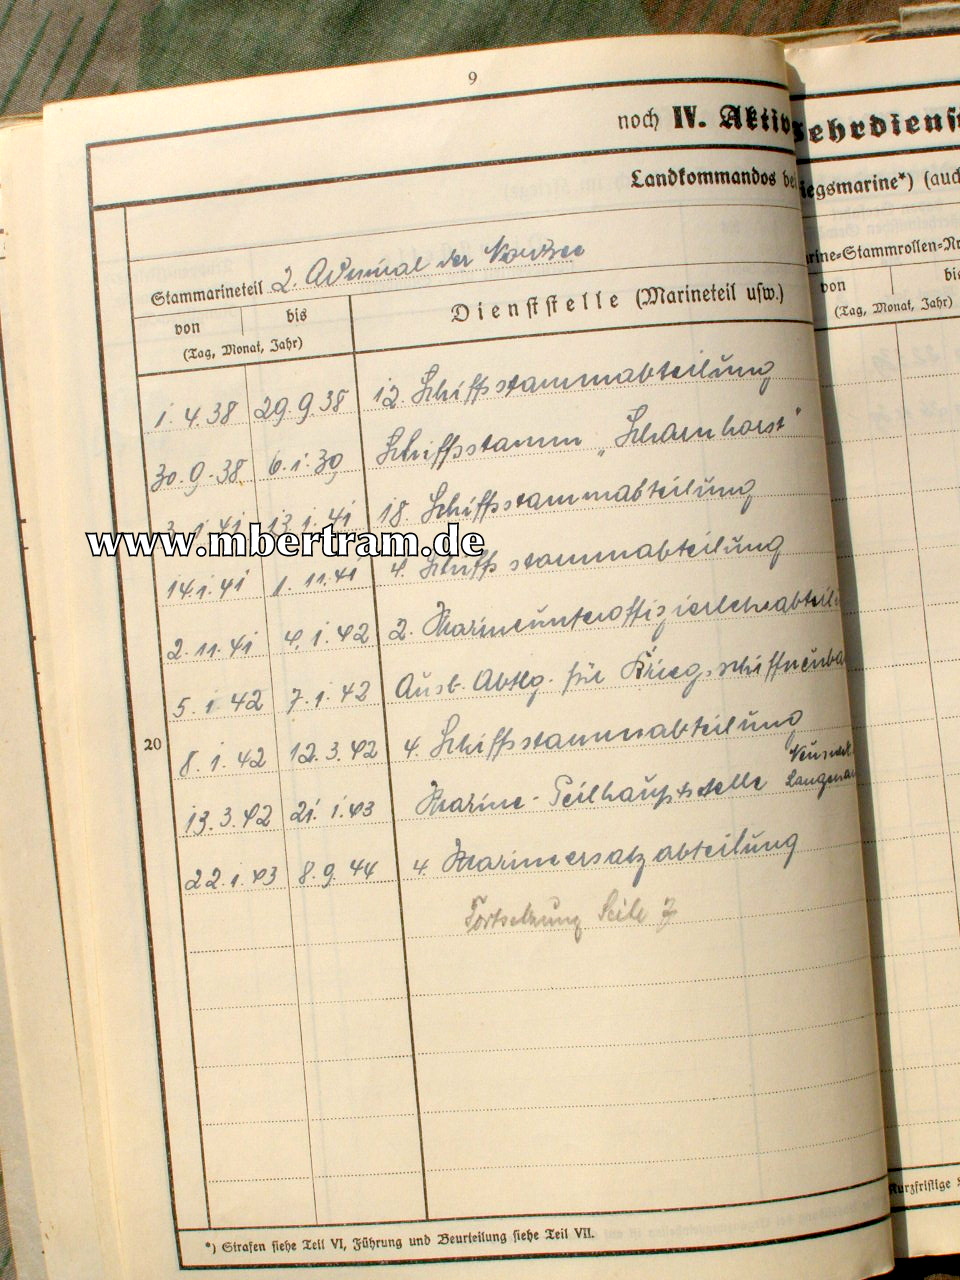 9
noch IV. Aktiv
Landkommandos bei
Stammarineteil 2. Admiral der Nordsee
von bis
(Tag, Monat, Jahr)
Dienststelle (Marineteil usw.)
1. 4. 38 29. 9. 38 12. Schiffsstammabteilung
30. 9. 38 6. 1. 39 Schiffsstamm „Scharnhorst"
3. 1. 41 13. 1. 41 18. Schiffsstammabteilung
www.mbertram.de
14. 1. 41 1. 11. 41 4. Schiffsstammabteilung
2. 11. 41 4. 1. 42 2. Marineunteroffizierlehrabteil
5. 1. 42 7. 1. 42 Ausb. Abtlg. für Kriegsschiffneuba
20
8. 1. 42 12. 3. 42 4. Schiffsstammabteilung
13. 3. 42 21. 1. 43 Marine-Peilhauptstelle
22. 1. 43 8. 9. 44 4. Marineersatzabteilung
Fortsetzung Seite 7
*) Strafen siehe Teil VI, Führung und Beurteilung siehe Teil VII.
ehrdienst
iegsmarine*) (auch
rine=Stammrollen=Nr
von bis
(Tag, Monat, Jahr)
Kurzfristige